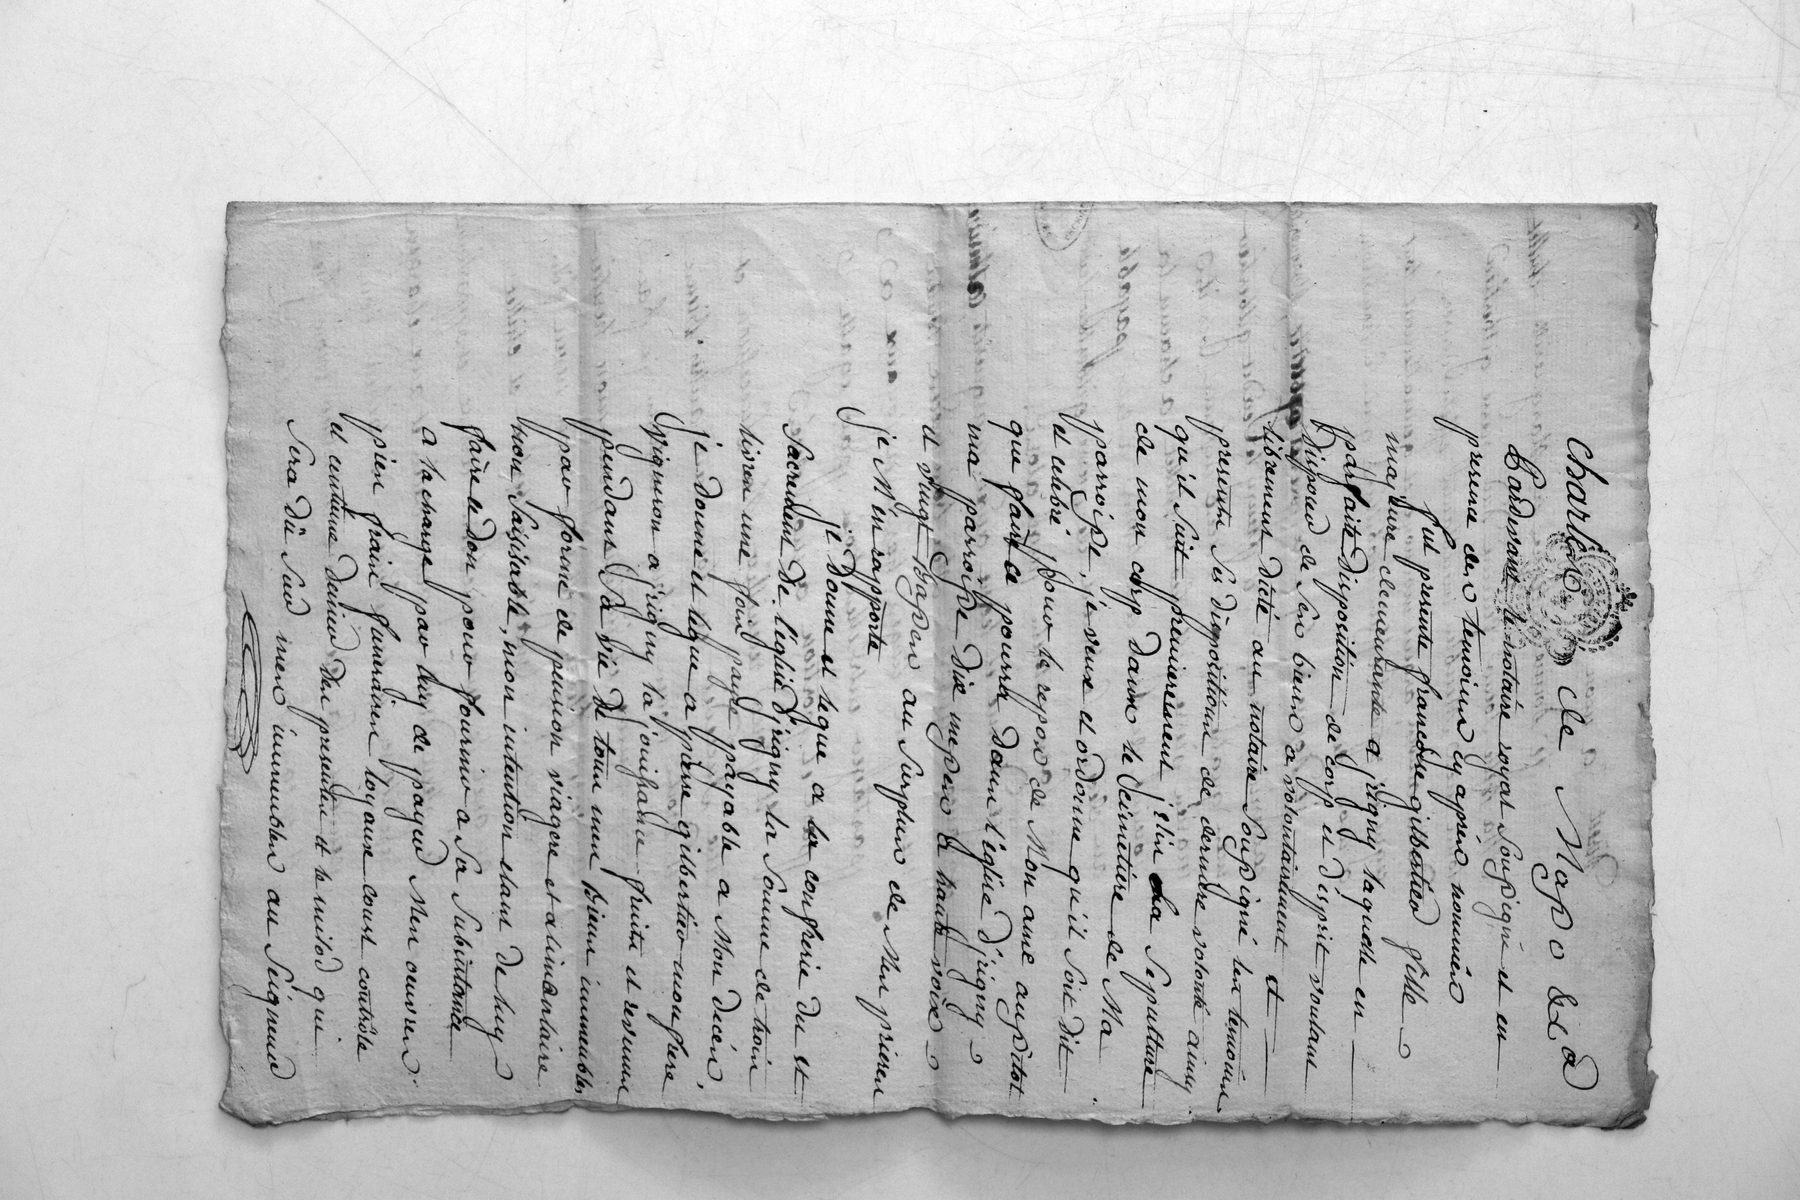 Charles de Mapo
Pardevant le notaire royal soupsigné et en
presence des temoins cy apprès nommés
fut presente françoise gilbertier fille
majeure demeurante a jrigny laquelle en
parfaite disposition de corp et d'esprit voulant
disposer de ses biens a volontairement et
librement dicté au notaire soupsigné les temoins
presents ses dispositions de derniere volonté ainsy
qu'il suit premierement j'elis la sepulture
de mon corp dans le cimetiere de ma
parroisse, je veux et ordonne qu'il soit dit
et celebré pour le repos de mon ame aussitot
que faire ce pourra dans l'eglise d'jrigny
ma parroisse dix messes a haute voix
et vingt basses au surplus de mes prieres
je m'en rapporte
je donne et legue a la confrerie du st
sacrement de l'eglise d'jrigny la somme de trois
livres une fois payée payable a mon decès,
je donne et legue a pierre gilbertier mon frere
vigneron a jrigny la jouissance fruits et revenus
pendant sa vie de tous mes biens immeubles
par forme de pension viagere et alimentaire
non saisissable, mon intention etant de luy
faire le don pour fournir a sa subsistance
a la charge par luy de payer mes oeuvres
pies frais funeraires loyaux cousts controlle
et centieme denier des presentes et le milod qui
sera dû sur mes immeubles au seigneur